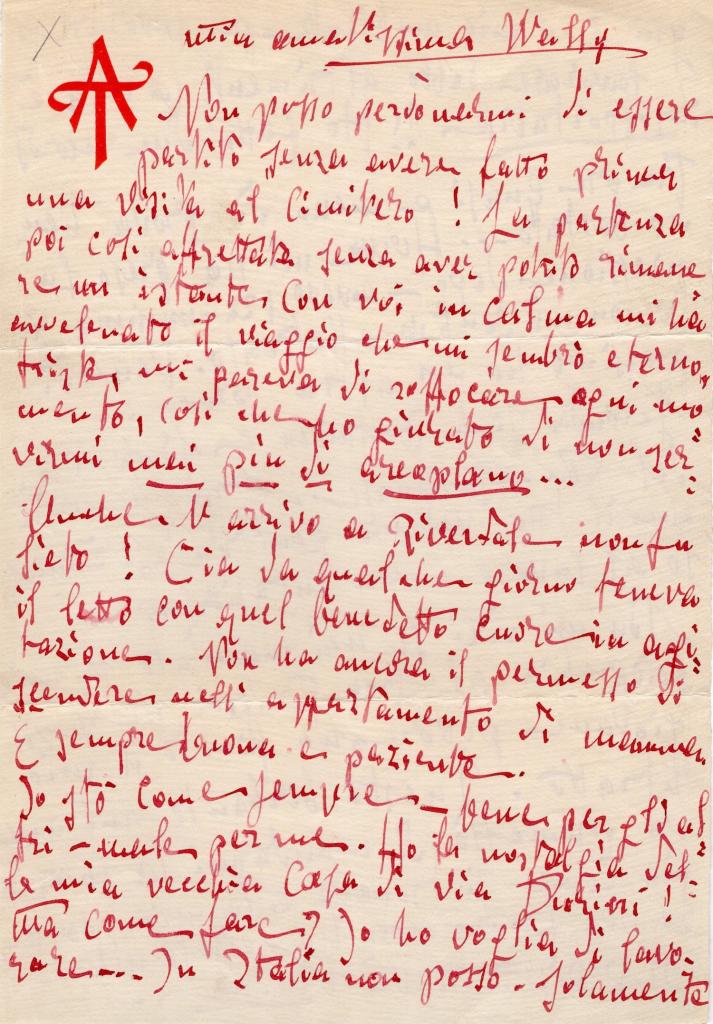 AT
mia amatissima Wally
Non posso perdonarmi di essere
partito senza avere fatto prima
una visita al Cimitero! La partenza
poi così affrettata senza aver potuto rimane
re un istante con voi in calma mi ha
avvelenato il viaggio che mi sembrò eterno,
triste, mi pareva di soffocare ogni mo
mento, così che ho giurato di non ser-
virmi mai più di areoplano...
Anche l'arrivo a Riverdale non fu
lieto! Cia da qualche giorno teneva
il letto con quel benedetto Cuore in agi-
tazione. Non ha ancora il permesso di
scendere nell'appartamento di mamma
È sempre buona e paziente.
Io stò come sempre - bene per gli al-
tri - male per me. Ho la nostalgia del-
la mia vecchia Casa di via Durini!
Ma come fare? Io ho voglia di lavo-
rare.... In Italia non posso. Solamente